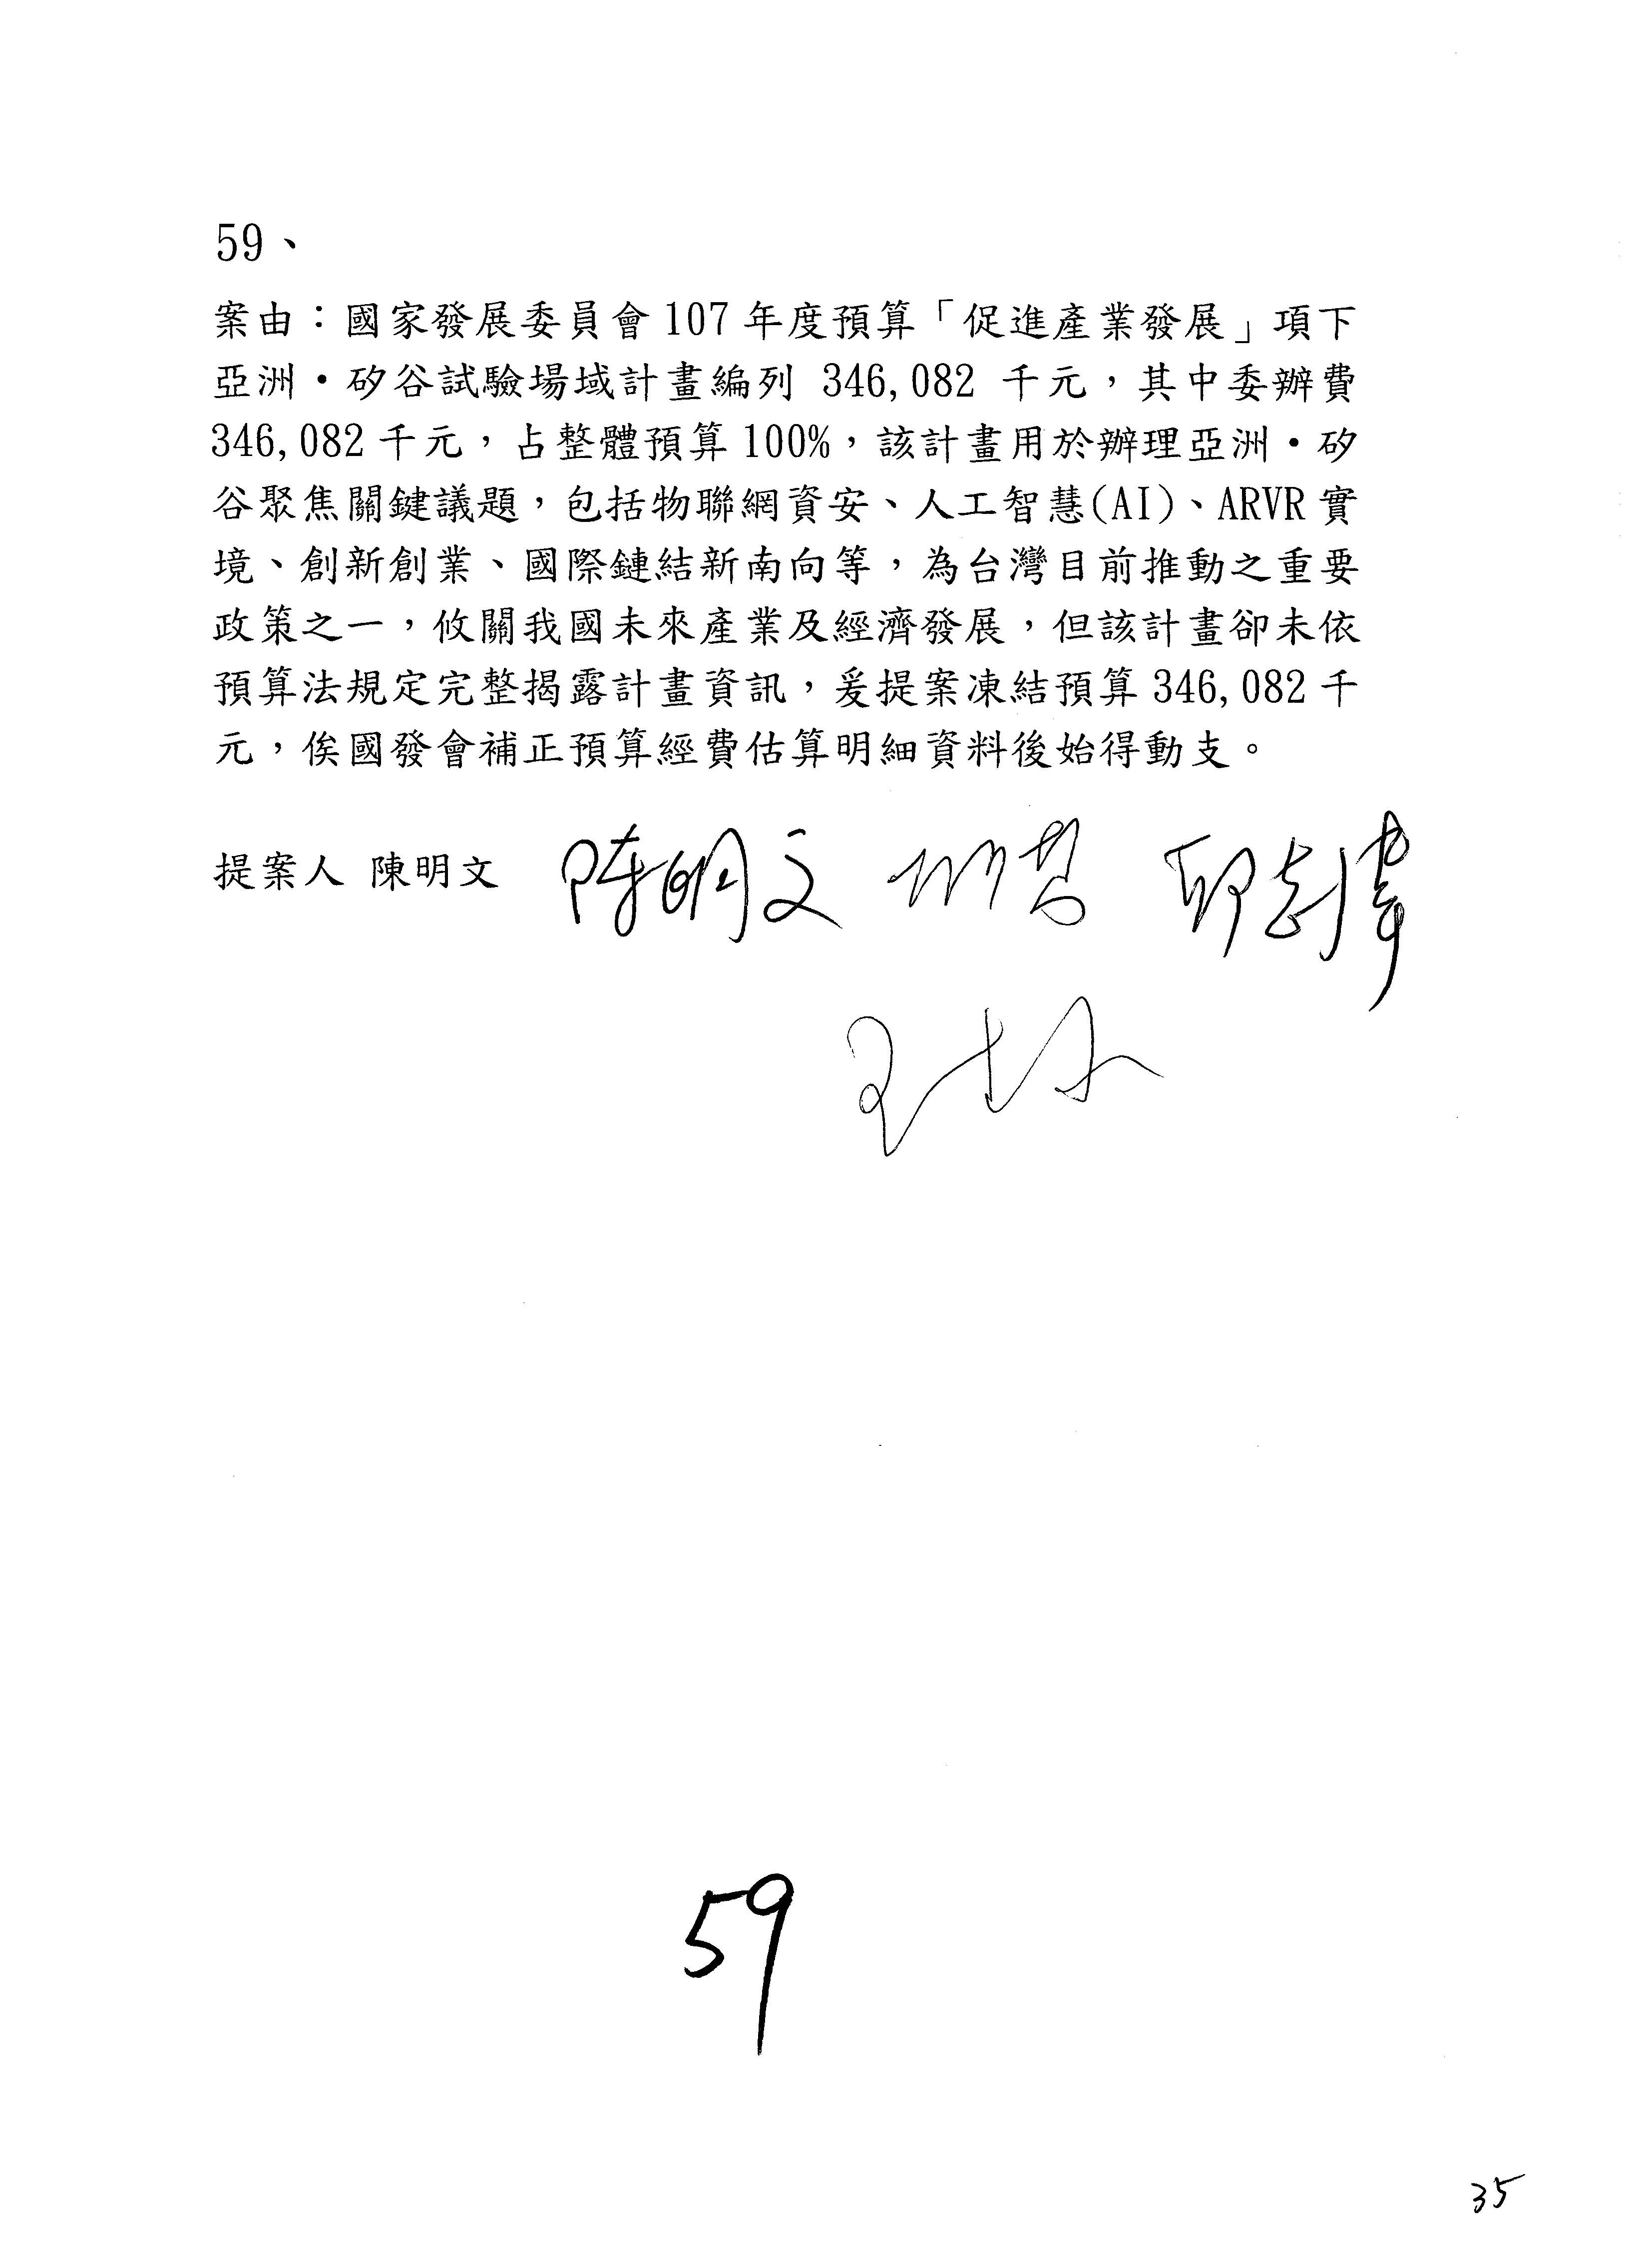 59、
案由：國家發展委員會 107 年度預算「促進產業發展」項下
亞洲•矽谷試驗場域計畫編列 346,082 千元，其中委辦費
346,082 千元，占整體預算 100%，該計畫用於辦理亞洲•矽
谷聚焦關鍵議題，包括物聯網資安、人工智慧(AI)、ARVR 實
境、創新創業、國際鏈結新南向等，為台灣目前推動之重要
政策之一，攸關我國未來產業及經濟發展，但該計畫卻未依
預算法規定完整揭露計畫資訊，爰提案凍結預算 346,082 千
元，俟國發會補正預算經費估算明細資料後始得動支。
提案人 陳明文 陳明文 邱志偉
59
35